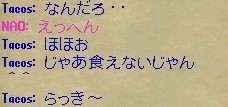 Tacos: なんだろ・・
NAO: えっへん
Tacos: ほほお
Tacos: じゃあ食えないじゃん
^ ^
Tacos: らっき～